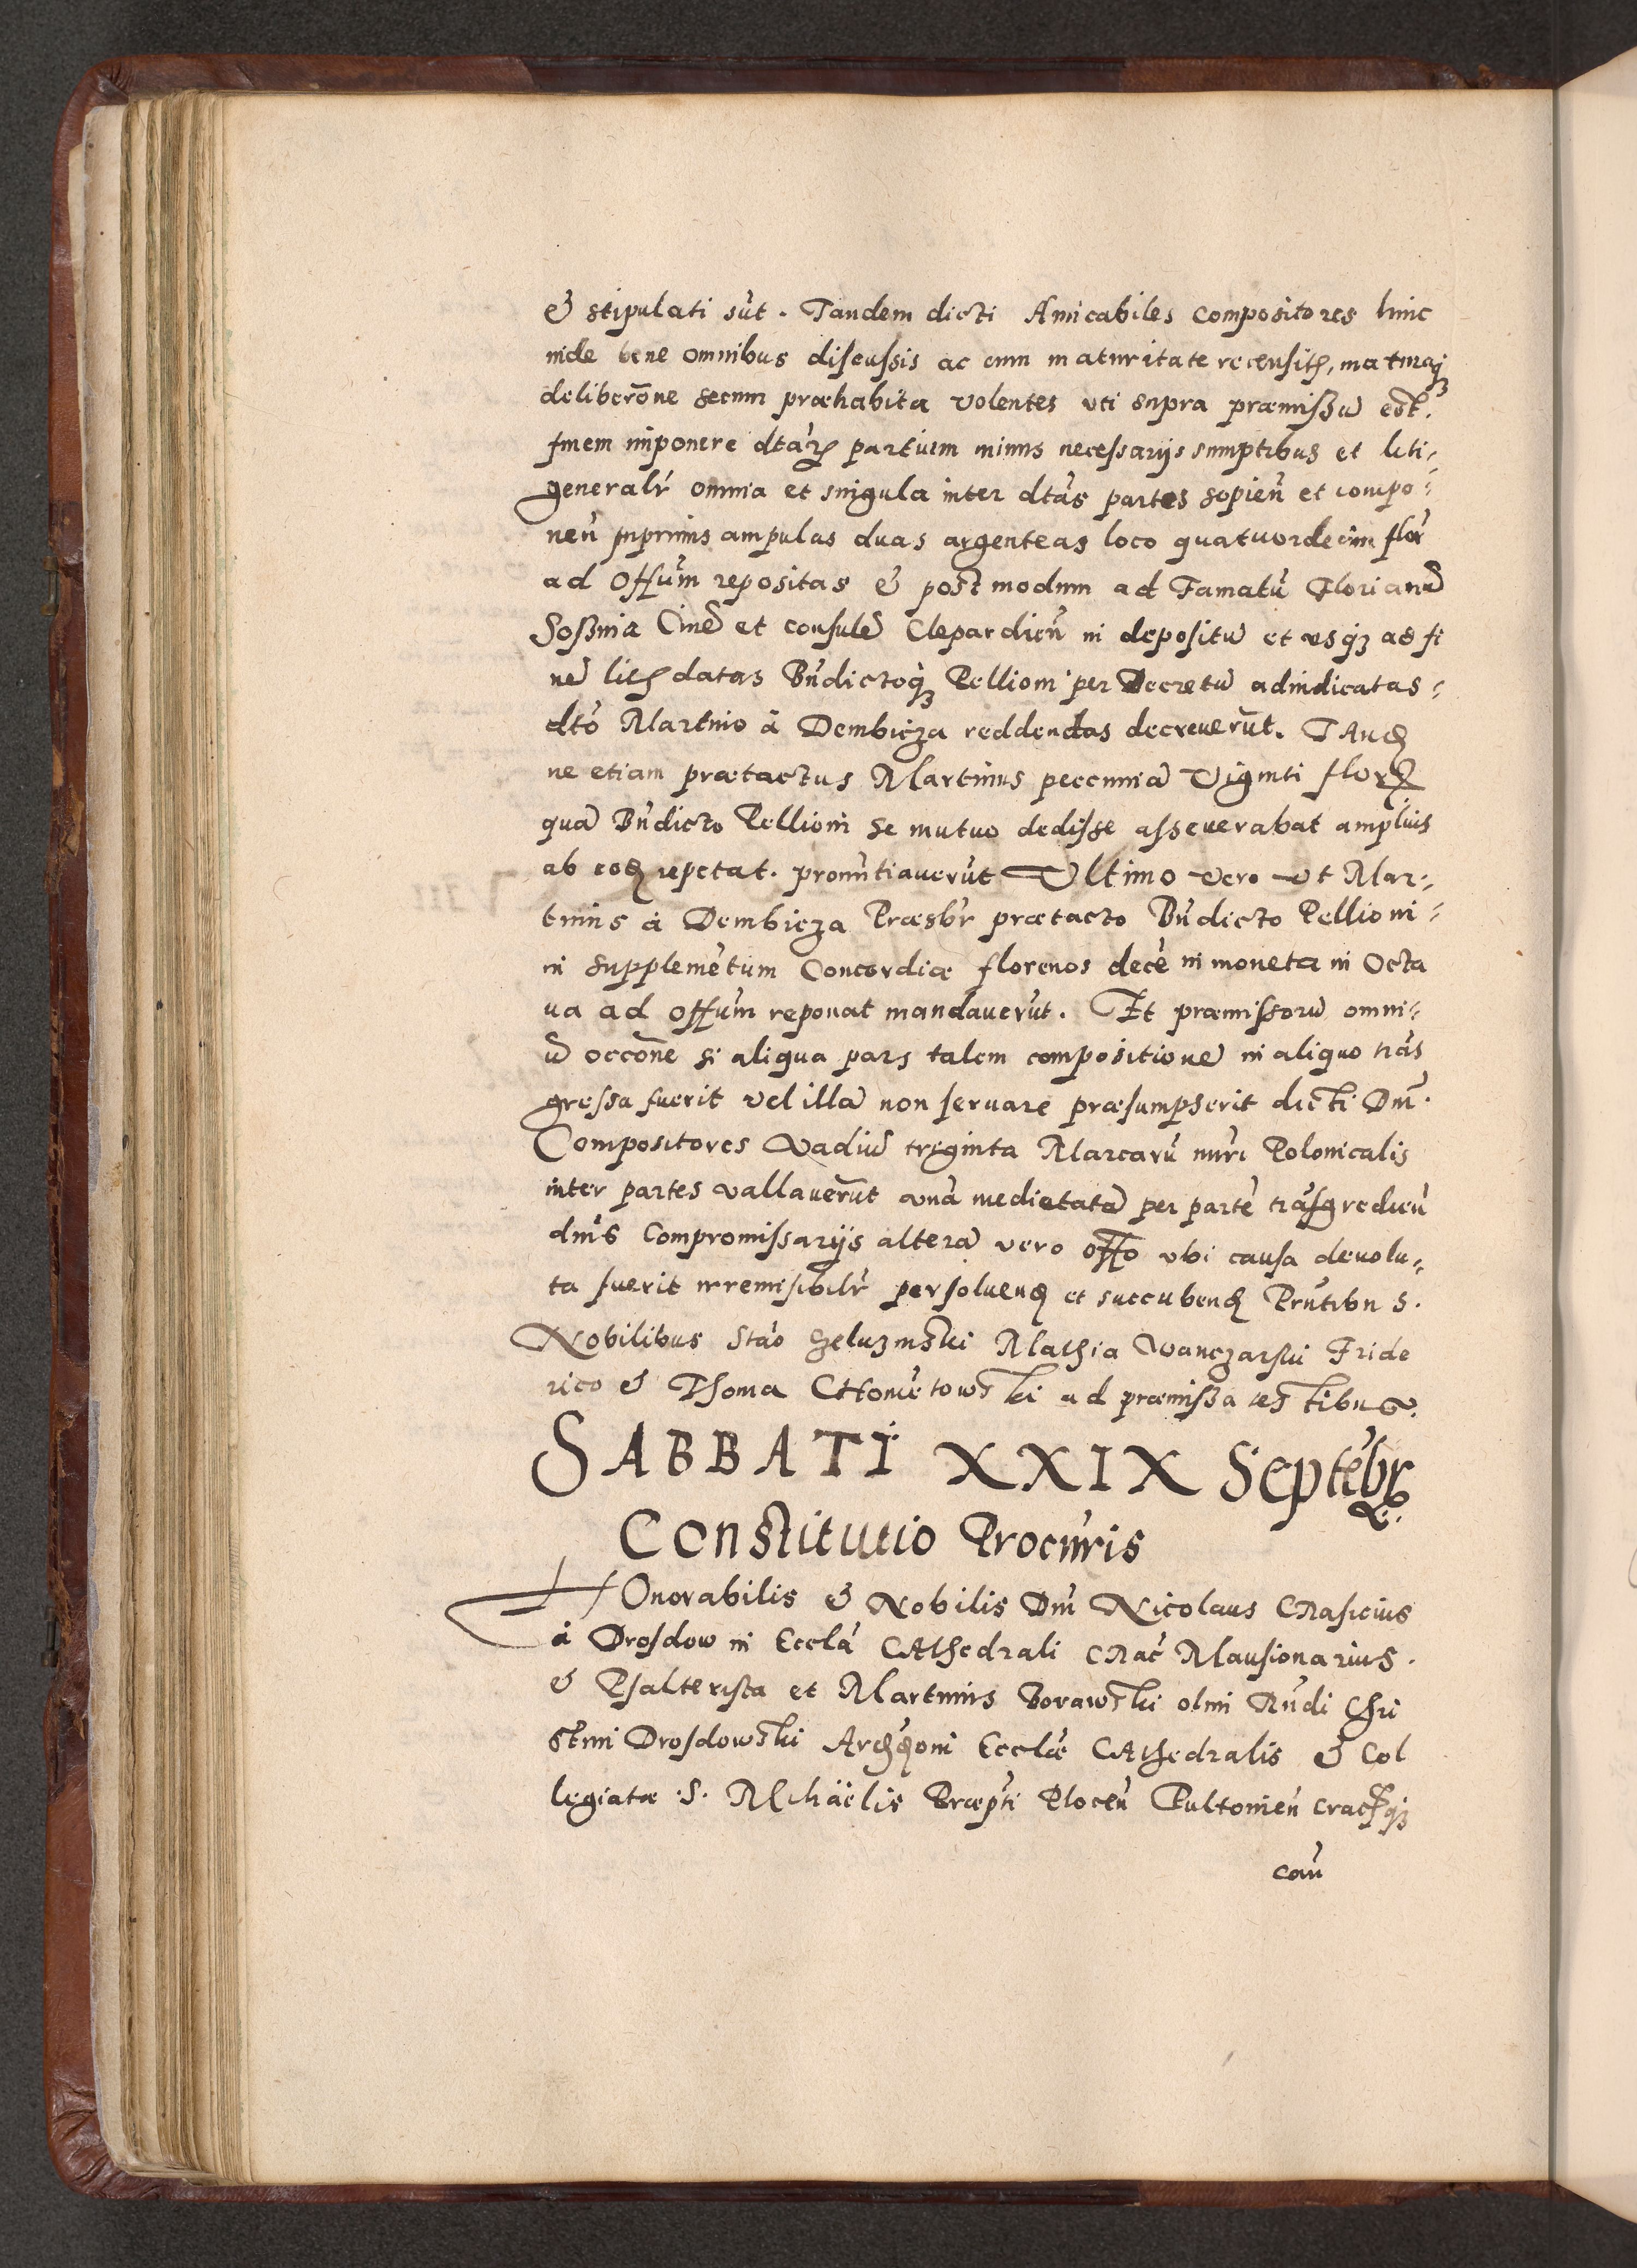 & stipulati sūt. Tandem dicti Amicabiles compositores hinc
inde bene omnibus discussis ac cum maturitate recensitꝭ, maturaqꝫ
deliberōne secum præhabita volentes uti supra præmissū est.
finem imponere dtārꝭ partium minus necessarijs sumptibus et liti:
generalr̄ omnia et singula inter dtās partes sopieñ et compo:
neñ inprimis ampulas duas argenteas loco quatuordecim flor̄
ad Offūm repositas & postmodum ad Famatū Florianū
Sosznia Civē et consulē Clepardieñ in depositū et usqꝫ ad fi
nē litꝭ datas Bn̄dictoqꝫ Pellioni per Decretū adiudicatas:
dtō Martino á Dembicza reddendas decreverūt. Tandꝫ
ne etiam prætactus Martinus pecuniā Viginti florꝭ
quā Bn̄dicto Pellioni se mutuo dedisse asseverabat amplius
ab eodꝫ repetat. pronūtiaverūt Ultimo vero ut Mar:
tinus á Dembicza Præsbr̄ prætacto Bn̄dicto Pellioni:
in supplemētum Concordiæ florenos decē in moneta in Octa
va ad Offūm reponat mandaverūt. Et præmissorū omni:
ū occōne si aliqua pars talem compositionē in aliquo trās
gressa fuerit vel illā non servare præsumpserit dicti Dn̄i.
Compositores Vadiū triginta Marcarū nūri Polonicalis
inter partes vallaverūt unā medietatē per partē trāsgredieñ
dn̄is Compromissarijs alterā vero offō ubi causa devolu:
ta fuerit irremisibilr̄ persolvendꝫ et succubendꝫ Prn̄tibus.
Nobilibus Stāo Zeluzinski Mathia Vanczarski Fride
rico & Thoma Chometowski ad præmissa testibus.
SABBATI XXIX Septēbr.
Constitutio Procur̄is
HOnorabilis & Nobilis Dn̄s Nicolaus Crasicius
á Drosdow in Ecclā CAthedrali Crac̄ Mansionarius.
& Psalterista et Martinus Borawski olim Rn̄di Chri
stini Drosdowski Archidꝫoni Ecclæ CAthedralis & Col
legiatæ .S. Michäelis Præpti Ploceñ Pultovieñ Cracꝭqꝫ
cañ